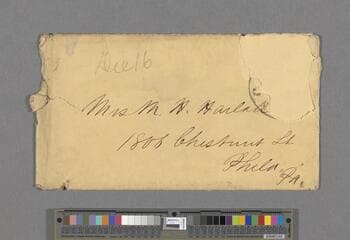 Dec 16
Mrs M. H. Harlan
1806 Chestnut St
Phila
Pa.